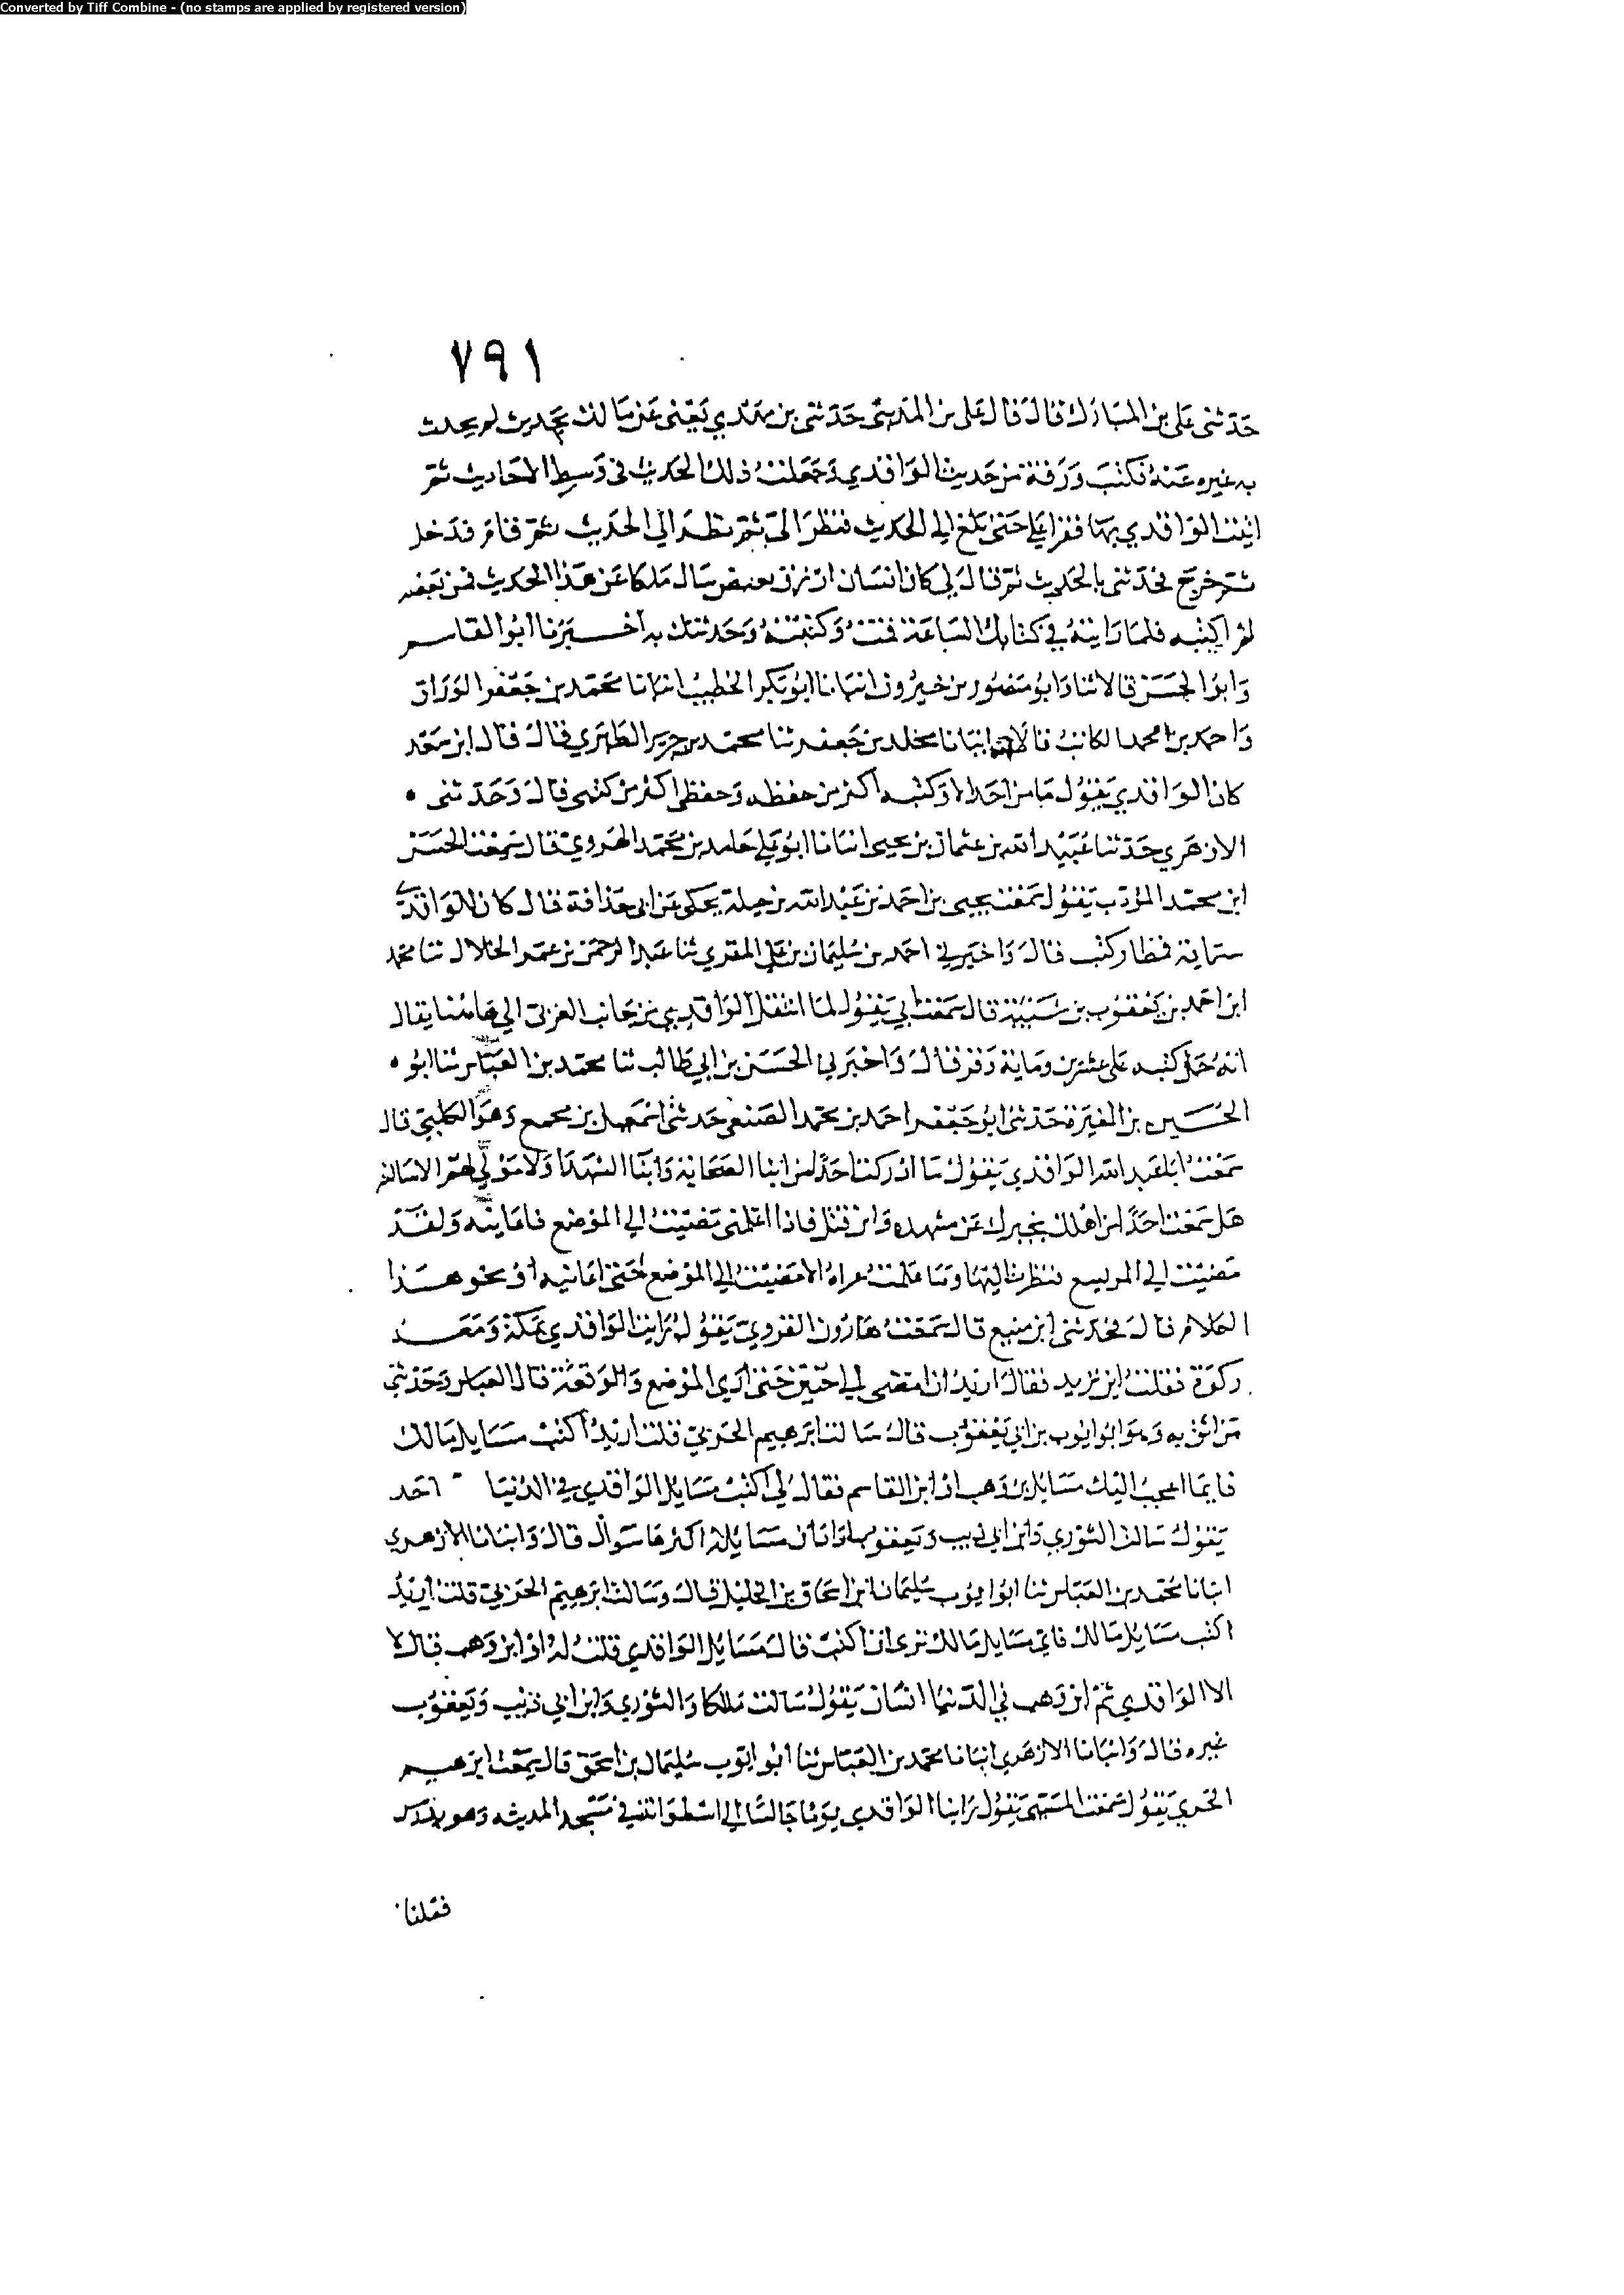 Converted by Tiff Combine - (no stamps are applied by registered version)
٧٩١
حدثنى على بن المبارك قال قال على بن المدينى حدثنى بن مهدي يعنى عن مالك بحديث لم يحدث
به غيره عنه فكتب ورقة من حديث الواقدي وجعلت ذلك الحديث فى وسط الاحاديث ثم
اتيت الواقدي بها فقرا على حتى بلغ الى الحديث فنظر الى ثم نظر الى الحديث ثم قام فدخل
ثم خرج فحدثنى بالحديث ثم قال لي كان انسان سال ملكا عن هذا الحديث
لم اكتبه فلما رايته في كتابك الساعة قمت وكتبته وحدثتك به اخبرنا ابو القاسم
وابو الحسن قالا ثنا وابو منصور بن خيرون انبانا ابو بكر الخطيب انبانا محمد بن جعفر الوراق
واحمد بن محمد الكاتب قالا انبانا مخلد بن جعفر ثنا محمد بن جرير الطبري قال قال ابن سعد
كان الواقدي يقول ما من احد الا وكتبه اكثر من حفظه وحفظى اكثر من كتبى قال وحدثنى
الازهري حدثنا عبيد الله بن عثمان بن يحيى انبانا ابو على حامد بن محمد الهروي قال سمعت الحسن
ابن محمد المؤدب يقول سمعت يحيى بن احمد بن عبد الله بن جبلة يحكى عن ابى حذافة قال كان للواقدي
ستماية قمطار كتب قال واخبرني احمد بن سليمان بن على المقري ثنا عبد الرحمن بن عمر الخلال ثنا محمد
ابن احمد بن يعقوب بن شيبة قال سمعت ابي يقول لما انتقل الواقدي من جانب الغربى الي هاهنا يقال
انه حمل كتبه على عشرين ومايه وقر قال واخبرني الحسن بن ابي طالب ثنا محمد بن العباس ثنا ابو
الحسين بن المغيرة حدثنى ابو جعفر احمد بن محمد الصنعى حدثنى اسمعيل بن مجمع وهو الكلبي قال
سمعت ابا عبد الله الواقدي يقول ما ادركت احدا من ابنا الصحابة وابنا الشهدا ولا مولى لهم الا سالته
هل سمعت احدا من اهلك يخبرك عن مشهده واين قتل فاذا اعلمنى مضيت الى الموضع فاعاينه ولقد
مضيت الي المريسيع فنظرت اليها وما علمت غزاة الا مضيت الى الموضع حتى اعاينه او نحو هذا
الكلام قال فحدثنى ابن منيع قال سمعت هارون الفروي يقول رايت الواقدي بمكة ومعه
ركوة فقلت اين تريد فقال اريد ان امضى الى حنين حتى ارى الموضع والوقعة قال العباس وحدثنى
من اثق به وهو ابو ايوب بن ابي يعقوب قال سالت ابرهيم الحربي قلت اريد اكتب مسايل مالك
فايما اعجب اليك مسايل بن وهب او ابن القاسم فقال لي اكتب مسايل الواقدي في الدنيا احد
يقول سالت الثوري وابن ابي ذيب ويعقوب قال وانبانا الازهري
انبانا محمد بن العباس ثنا ابو ايوب سليمان بن اسحاق بن الخليل قال وسالت ابرهيم الحربي قلت اريد
اكتب مسايل مالك فاي مسايل مالك ترى ان اكتب قال مسايل الواقدي قلت له او ابن وهب قال لا
الا الواقدي ثم ابن وهب في الدنيا انسان يقول سالت مالكا والثوري وابن ابي ذيب ويعقوب
غيره قال وانبانا الازهري انبانا محمد بن العباس ثنا ابو ايوب سليمان بن اسحق قال سمعت ابرهيم
الحربي يقول سمعت المسيبى يقول راينا الواقدي يوما جالسا الى اسطوانة في مسجد المدينه وهو يدرس
فقلنا